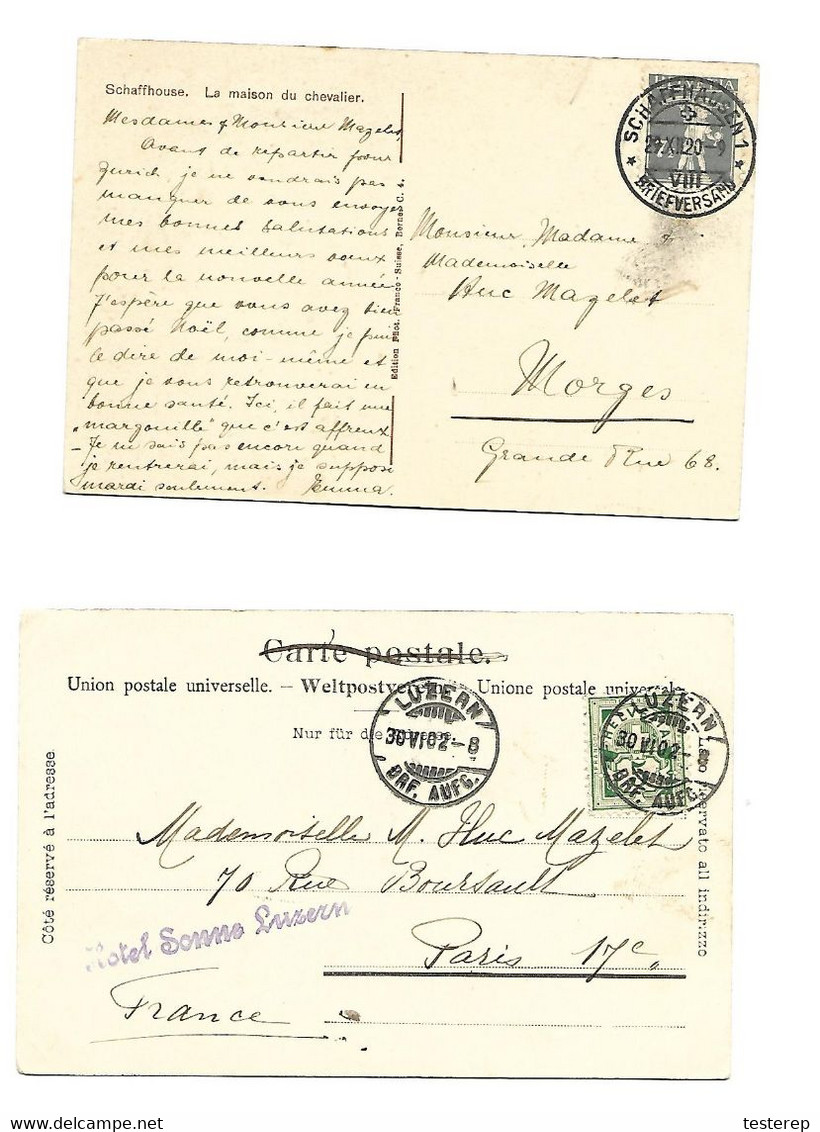 Schaffhouse. La maison du chevalier.
Mesdames & Monsieur Mazelet,
Avant de repartir pour
Zurich, je ne voudrais pas
manquer de vous envoyer
mes bonnes salutations
et mes meilleurs vœux
pour la nouvelle année.
J'espère que vous avez bien
passé Noël, comme je puis
le dire de moi-même et
que je vous retrouverai en
bonne santé. Ici, il fait une
„margouille" que c'est affreux
- Je ne sais pas encore quand
je rentrerai, mais je suppose
mardi seulement. Emma.
Edition Phot. Franco-Suisse, Berne C. 4.
HELVETIA
SCHAFFHAUSEN 1
29.XII.20-9
VIII
BRIEFVERSAND
Monsieur, Madame &
Mademoiselle
Huc Mazelet
Morges
Grande Rue 68.
Carte postale.
Union postale universelle. — Weltpostverein. — Unione postale universale.
Nur für die Adresse.
LUZERN
30 VI 02-8
BRF. AUFG.
LUZERN
30 VI 02-
BRF. AUFG.
Côté réservé à l'adresse.
Lato riservato all indirizzo
Mademoiselle M. Huc Mazelet
70 Rue Boursault
Hotel Sonne Luzern
Paris 17e
France
delcampe.net
testerep